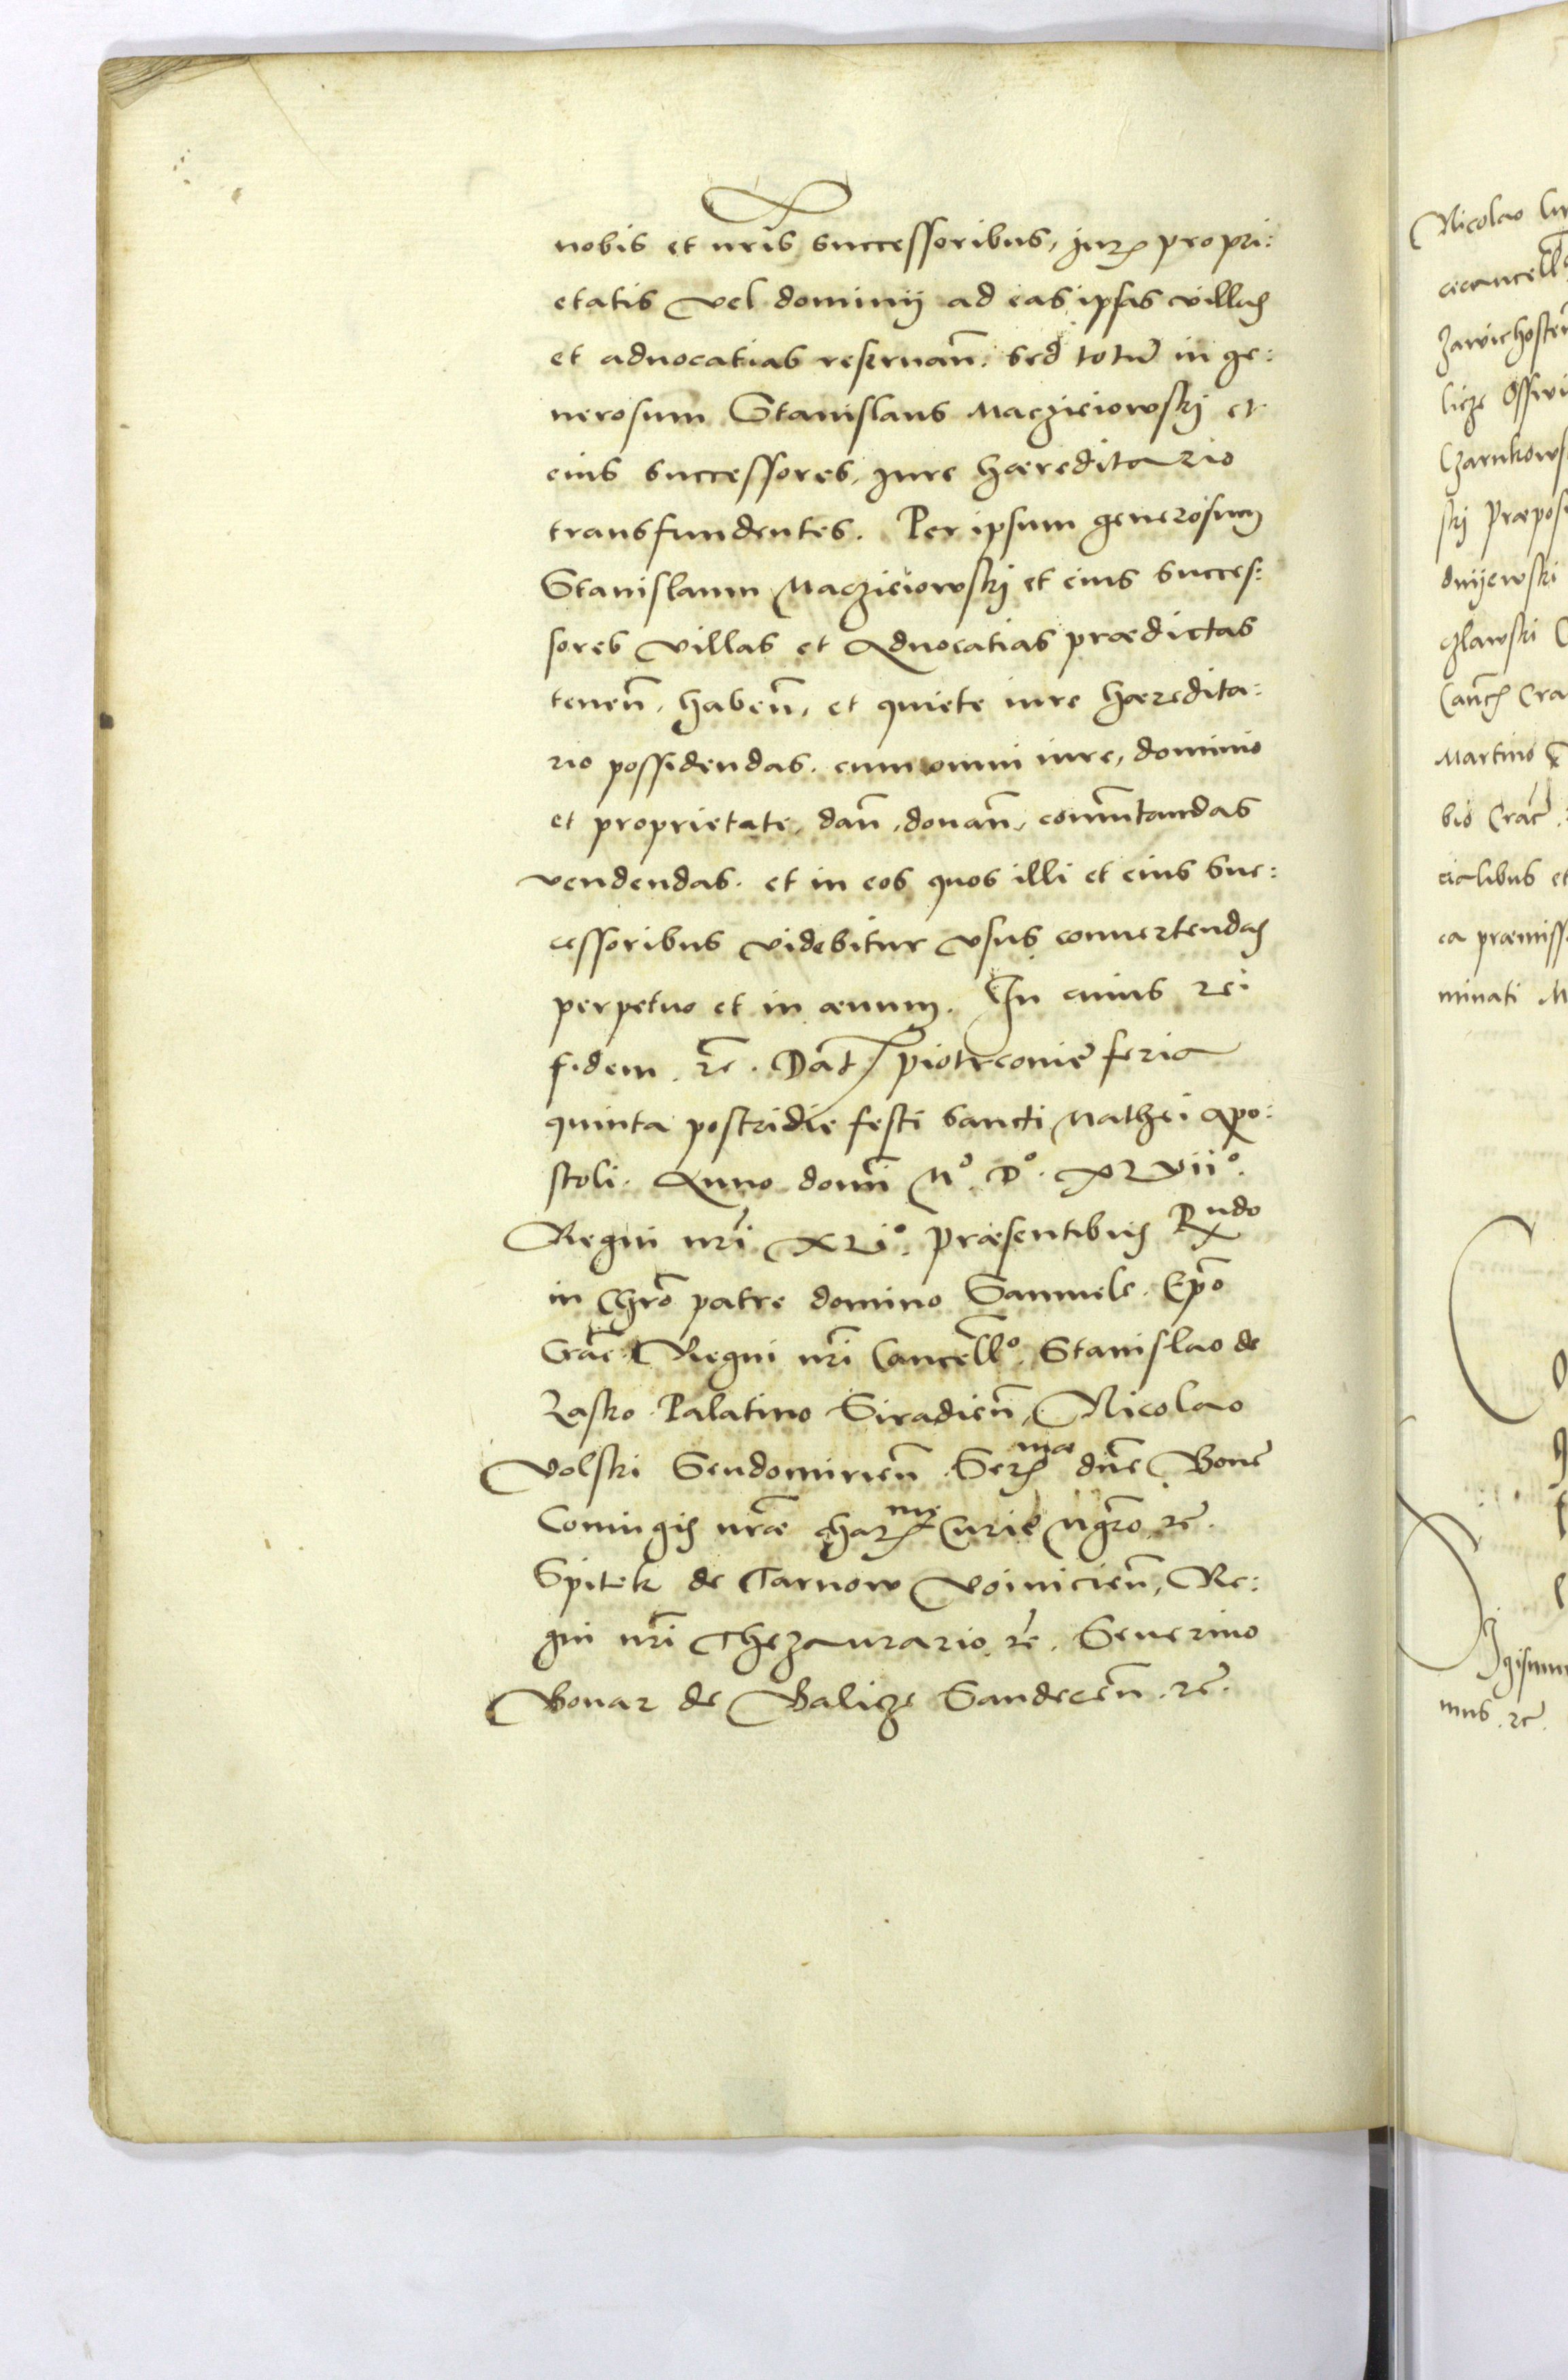 nobis et nris successoribus, jurꝭ propri:
etatis vel dominij ad eas ipsas villas
et advocatias reservañ. sed totũ in ge:
nerosum Stanislaus Maczieiowskj et
eius successores, jure hæreditario
transfundentes. Per ipsum generosum
Stanislaum Maczieiowskj et eius succes:
sores villas et Advocatias prædictas
teneñ, habeñ, et quiete iure hæredita:
rio possidendas. cum omni iure, dominio
et proprietate, dañ, donañ, com̃utandas
vendendas. et in eos quos illi et eius suc:
cessoribus videbitur usus convertendas
perpetuo et in ævum. In cuius rei
fidem. rc̃. Dat̃ piotrconiẽ feria
quinta postridie festi sancti Mathei Apo:
stoli. Anno domi̅ M°. D°. XLVii°.
Regni nr̃i XLi°. præsentibus Rndo
in Chro̅ patre domino Samuele. Epo̅
Crac̃. Regni nr̃i Cancell̃°. Stanislao de
Lasko Palatino Siradieñ, Nicolao
Volski Sendomirieñ. Serꝭmæ dñe Bonę
Coniugis nr̃æ charꝭmę Curiẽ Mgr̃o. rc̃.
Spitek de Tarnow Voinicieñ, Re:
gni nr̃i Thezaurario rc̃. Severino
Bonar de Balicze Sandeceñ. rc̃.
Nicolao
cecancell
Zawichosteñ
licze Osswi
Czarnkows
skj Præpos
dnijewski
czlawski
Canc̃ Cra
Martino
bio Crac̃
cialibus et
ca præmiss
minati M
gismu
mus. rc̃.